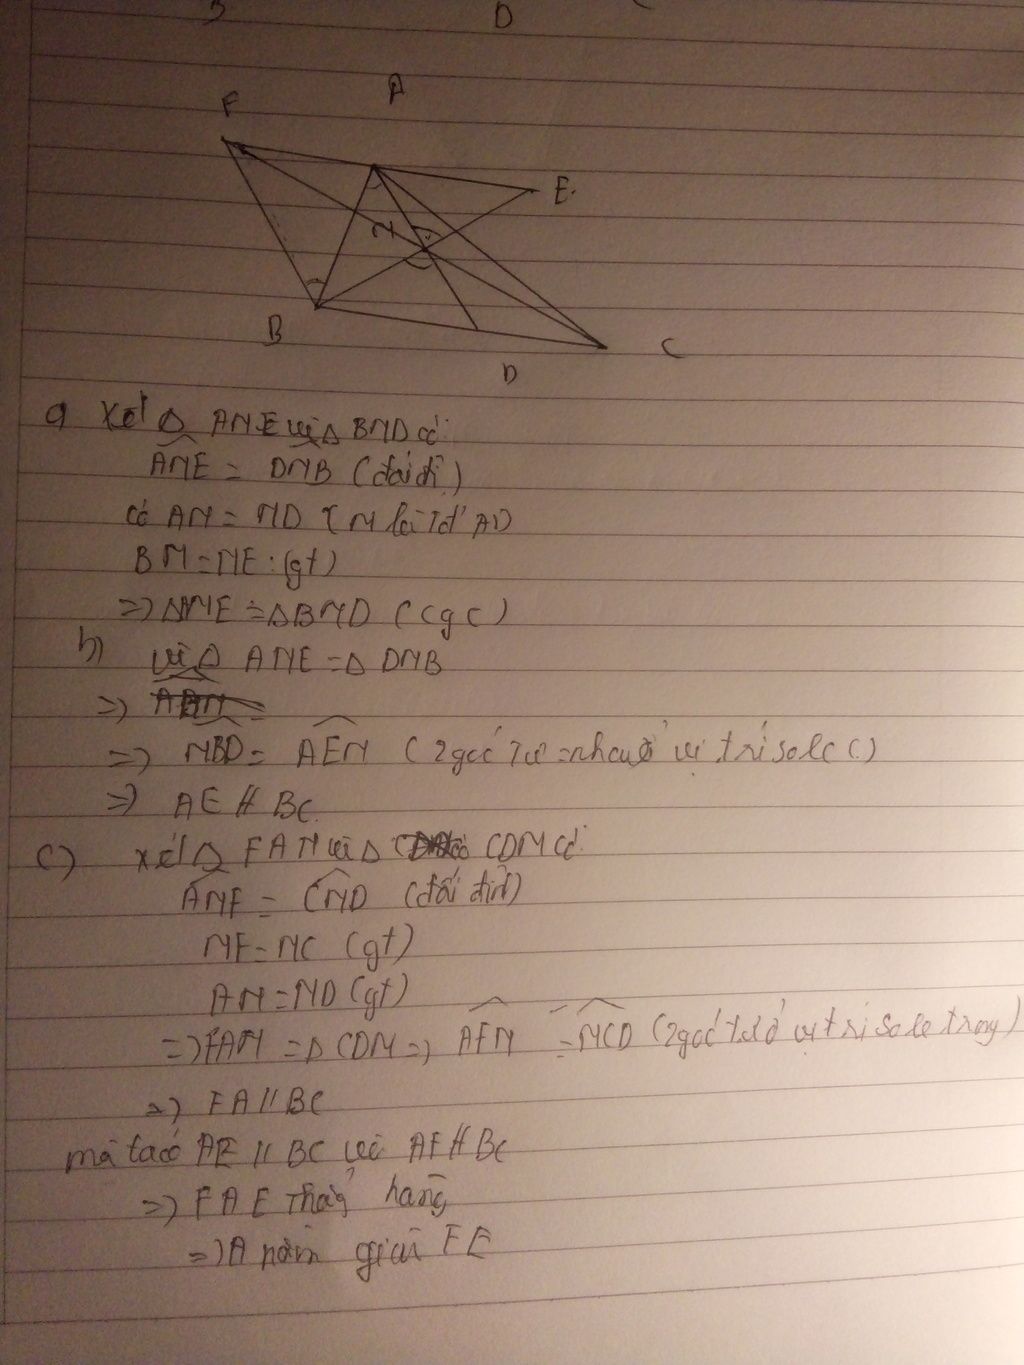 B D
F A
E.
M
B C
D
a Xét Δ AME và Δ BMD có:
AME = DMB (đối đỉ)
có AM = MD (M là Tđ AD
BM = ME: (gt)
=> ΔAME = ΔBMD (cgc)
b) vì Δ AME = Δ DMB
=>
=> MBD = AEM (2 góc Tư = nhau ở vị trí sole C)
=> AE // BC.
c) xét Δ FAM và Δ CDM có:
AMF = CMD (đối đỉnh)
MF = MC (gt)
AM = MD (gt)
=> FAM = Δ CDM => AFM = MCD (2 góc Tư ở vị trí so le trong)
=> FA // BC
mà ta có AE // BC và AF // BC
=> F A E Thẳng hàng
=> A nằm giữa F E